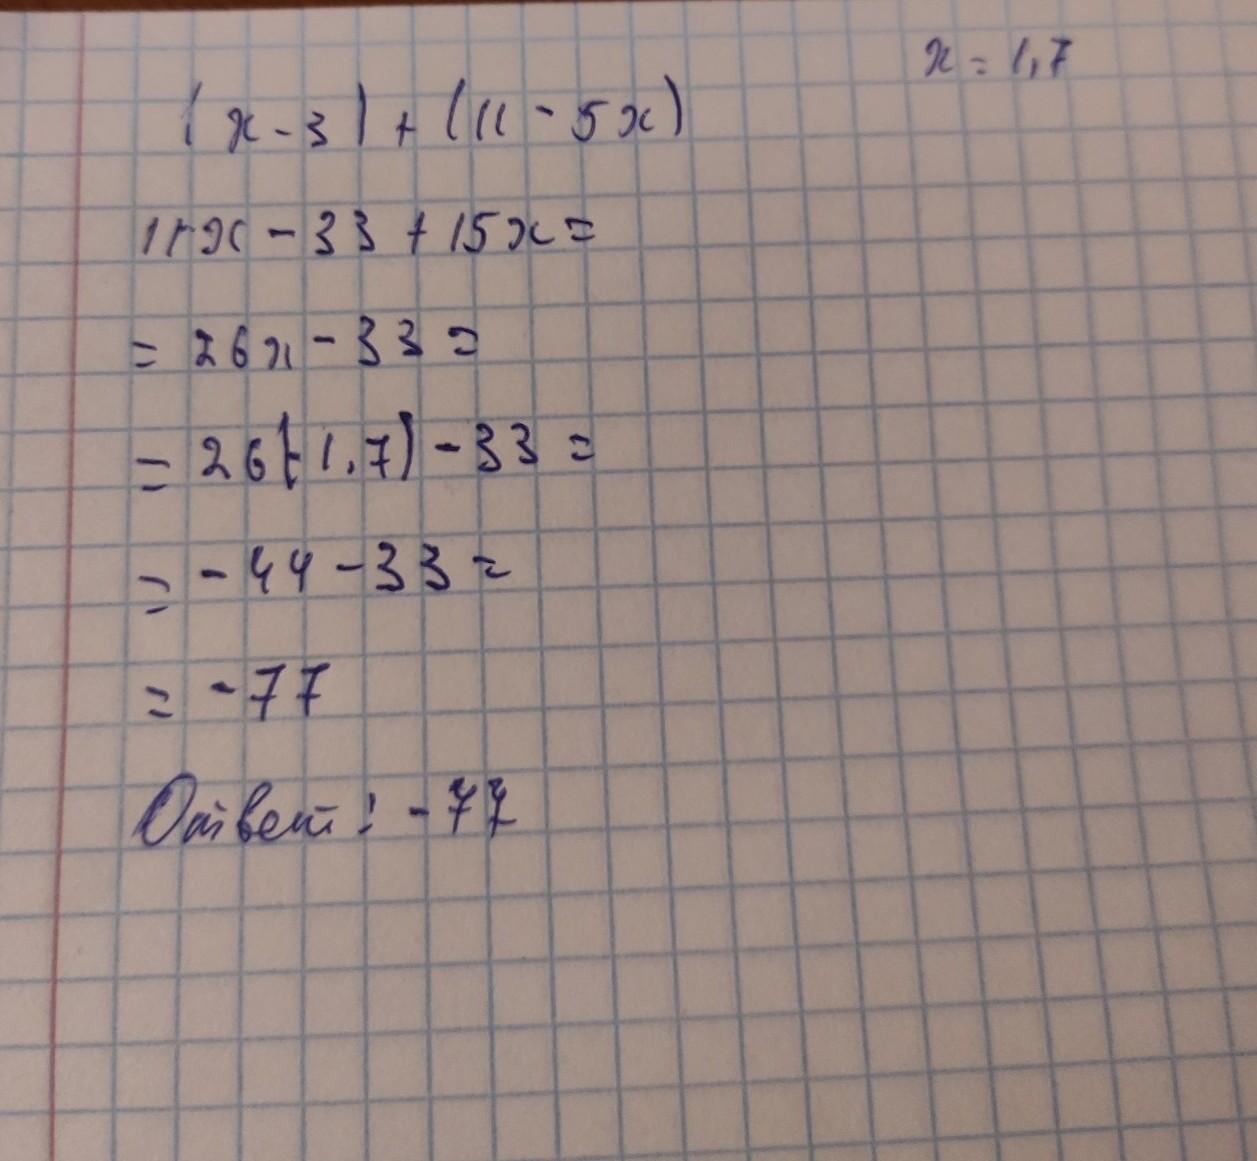 x = 1,7
(x - 3) + (11 - 5x)
11x - 33 + 15x =
= 26x - 33 =
= 26(-1,7) - 33 =
= -44 - 33 =
= -77
Ответ: -77